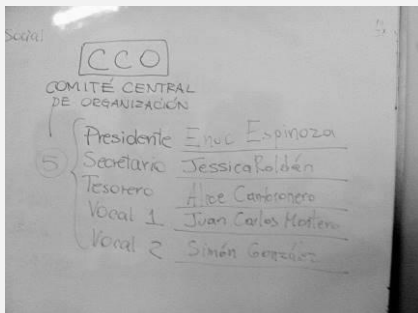 Social
CCO
COMITÉ CENTRAL
DE ORGANIZACIÓN
5
Presidente Enoc Espinoza
Secretario Jessica Roldán
Tesorero Cambronero
Vocal 1 Juan Carlos
Vocal 2 Simón González